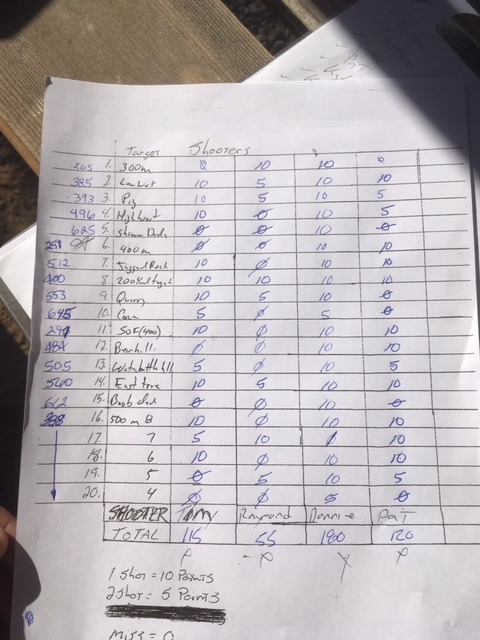 Target Shooters
205 1. 300m 0 10 10 0
385 2 10 5 10 10
393 3. Pig 10 5 10 5
496 4. 10 0 10 5
625 5. 0 0 10 0
251 6. 400m 0 0 10 10
512 7. Jagged Rock 10 0 10 10
400 8 10 10 10 10
553 9. Quarry 10 5 10 0
645 10. 5 0 5 0
11. 50F(400) 10 0 10 10
484 12. 0 0 10 10
505 13. 5 0 10 5
560 14. East tree 10 5 10 10
612 15. 0 0 10 0
388 16. 500m 8 10 0 10 10
17. 7 5 10 0 10
18. 6 10 0 10 10
19. 5 0 5 10 5
20. 4 0 0 5 0
SHOOTER Raymond Donnie Pat
TOTAL 115 55 180 120
1 Shot = 10 Points
2 Shot = 5 Points
Miss = 0